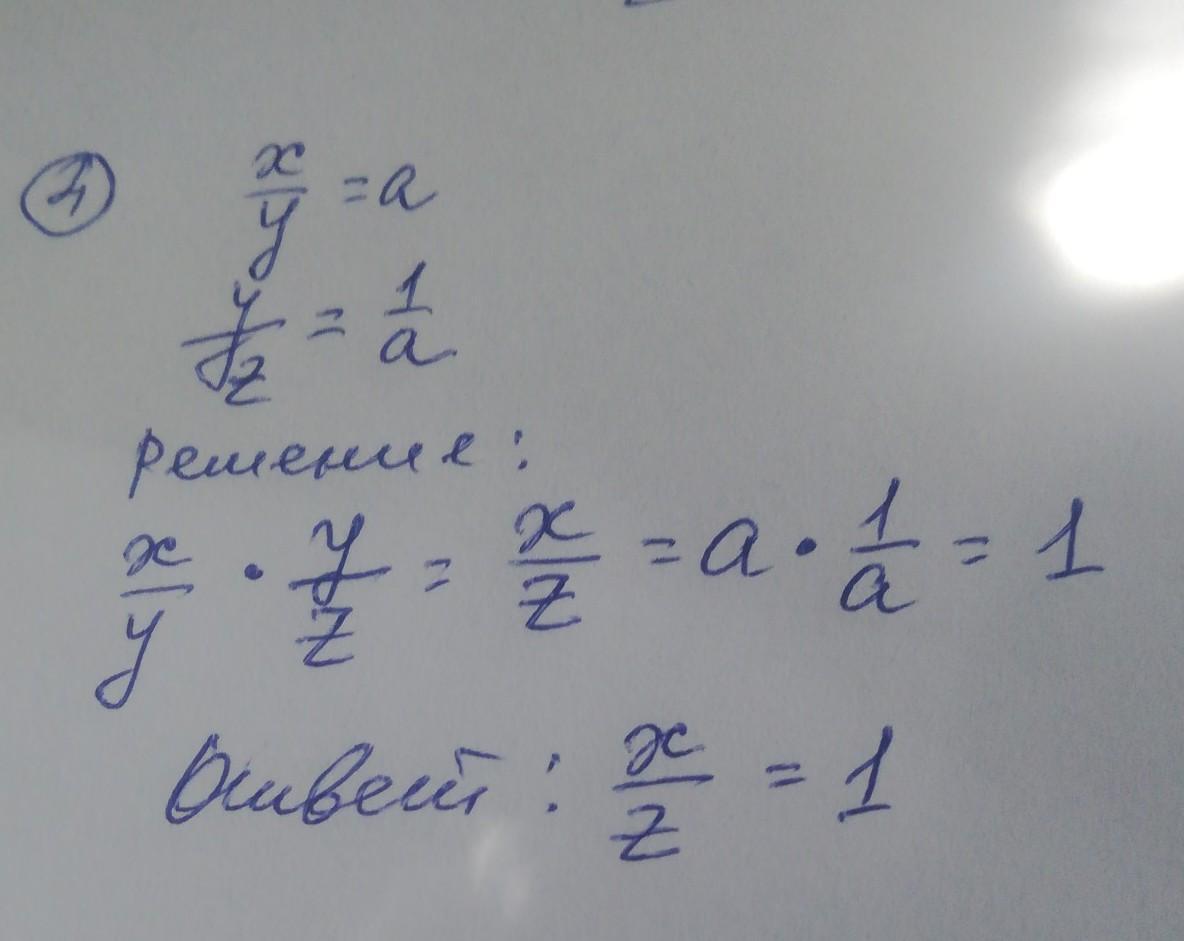 ① x/y = a
y/z = 1/a
решение:
x/y · y/z = x/z = a · 1/a = 1
Ответ: x/z = 1